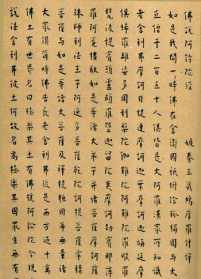 佛說阿彌陀經 姚秦三藏鳩摩羅什譯
如是我聞一時佛在舍衛國祇樹給孤獨園與大比
丘僧千二百五十人俱皆是大阿羅漢眾所知識長
老舍利弗摩訶目犍連摩訶迦葉摩訶迦旃延摩訶
俱絺羅離婆多周利槃陀伽難陀阿難陀羅睺羅憍
梵波提賓頭盧頗羅墮迦留陀夷摩訶劫賓那薄拘
羅阿㝹樓馱如是等諸大弟子并諸菩薩摩訶薩文
殊師利法王子阿逸多菩薩乾陀訶提菩薩常精進
菩薩與如是等諸大菩薩及釋提桓因等無量諸天
大眾俱爾時佛告長老舍利弗從是西方過十萬億
佛土有世界名曰極樂其土有佛號阿彌陀今現在
說法舍利弗彼土何故名為極樂其國眾生無有眾